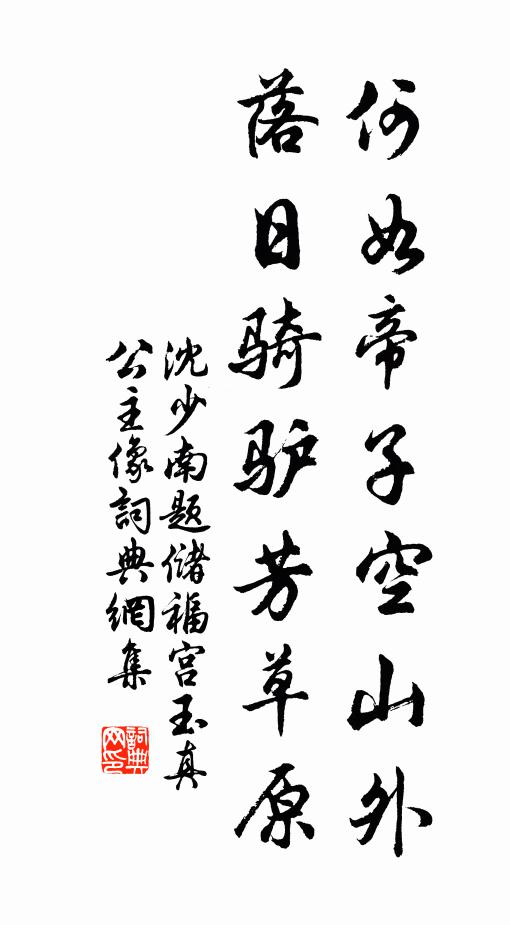 何如帝子空山外
落日骑驴芳草原
沈少南题储福宫玉真
公主像詞典網集
詞典网印